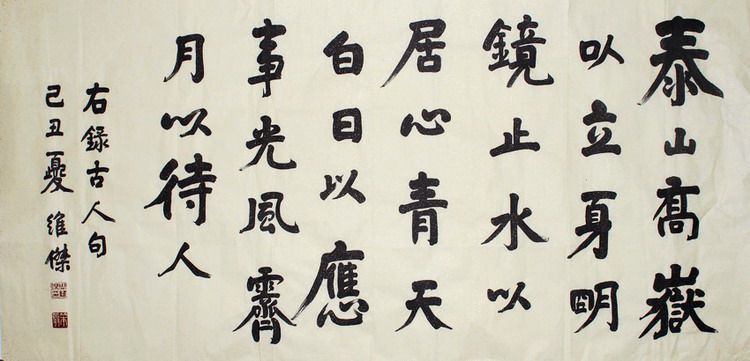 泰山高嶽
以立身明
鏡止水以
居心青天
白日以應
事光風霽
月以待人
右錄古人句
己丑夏 維傑